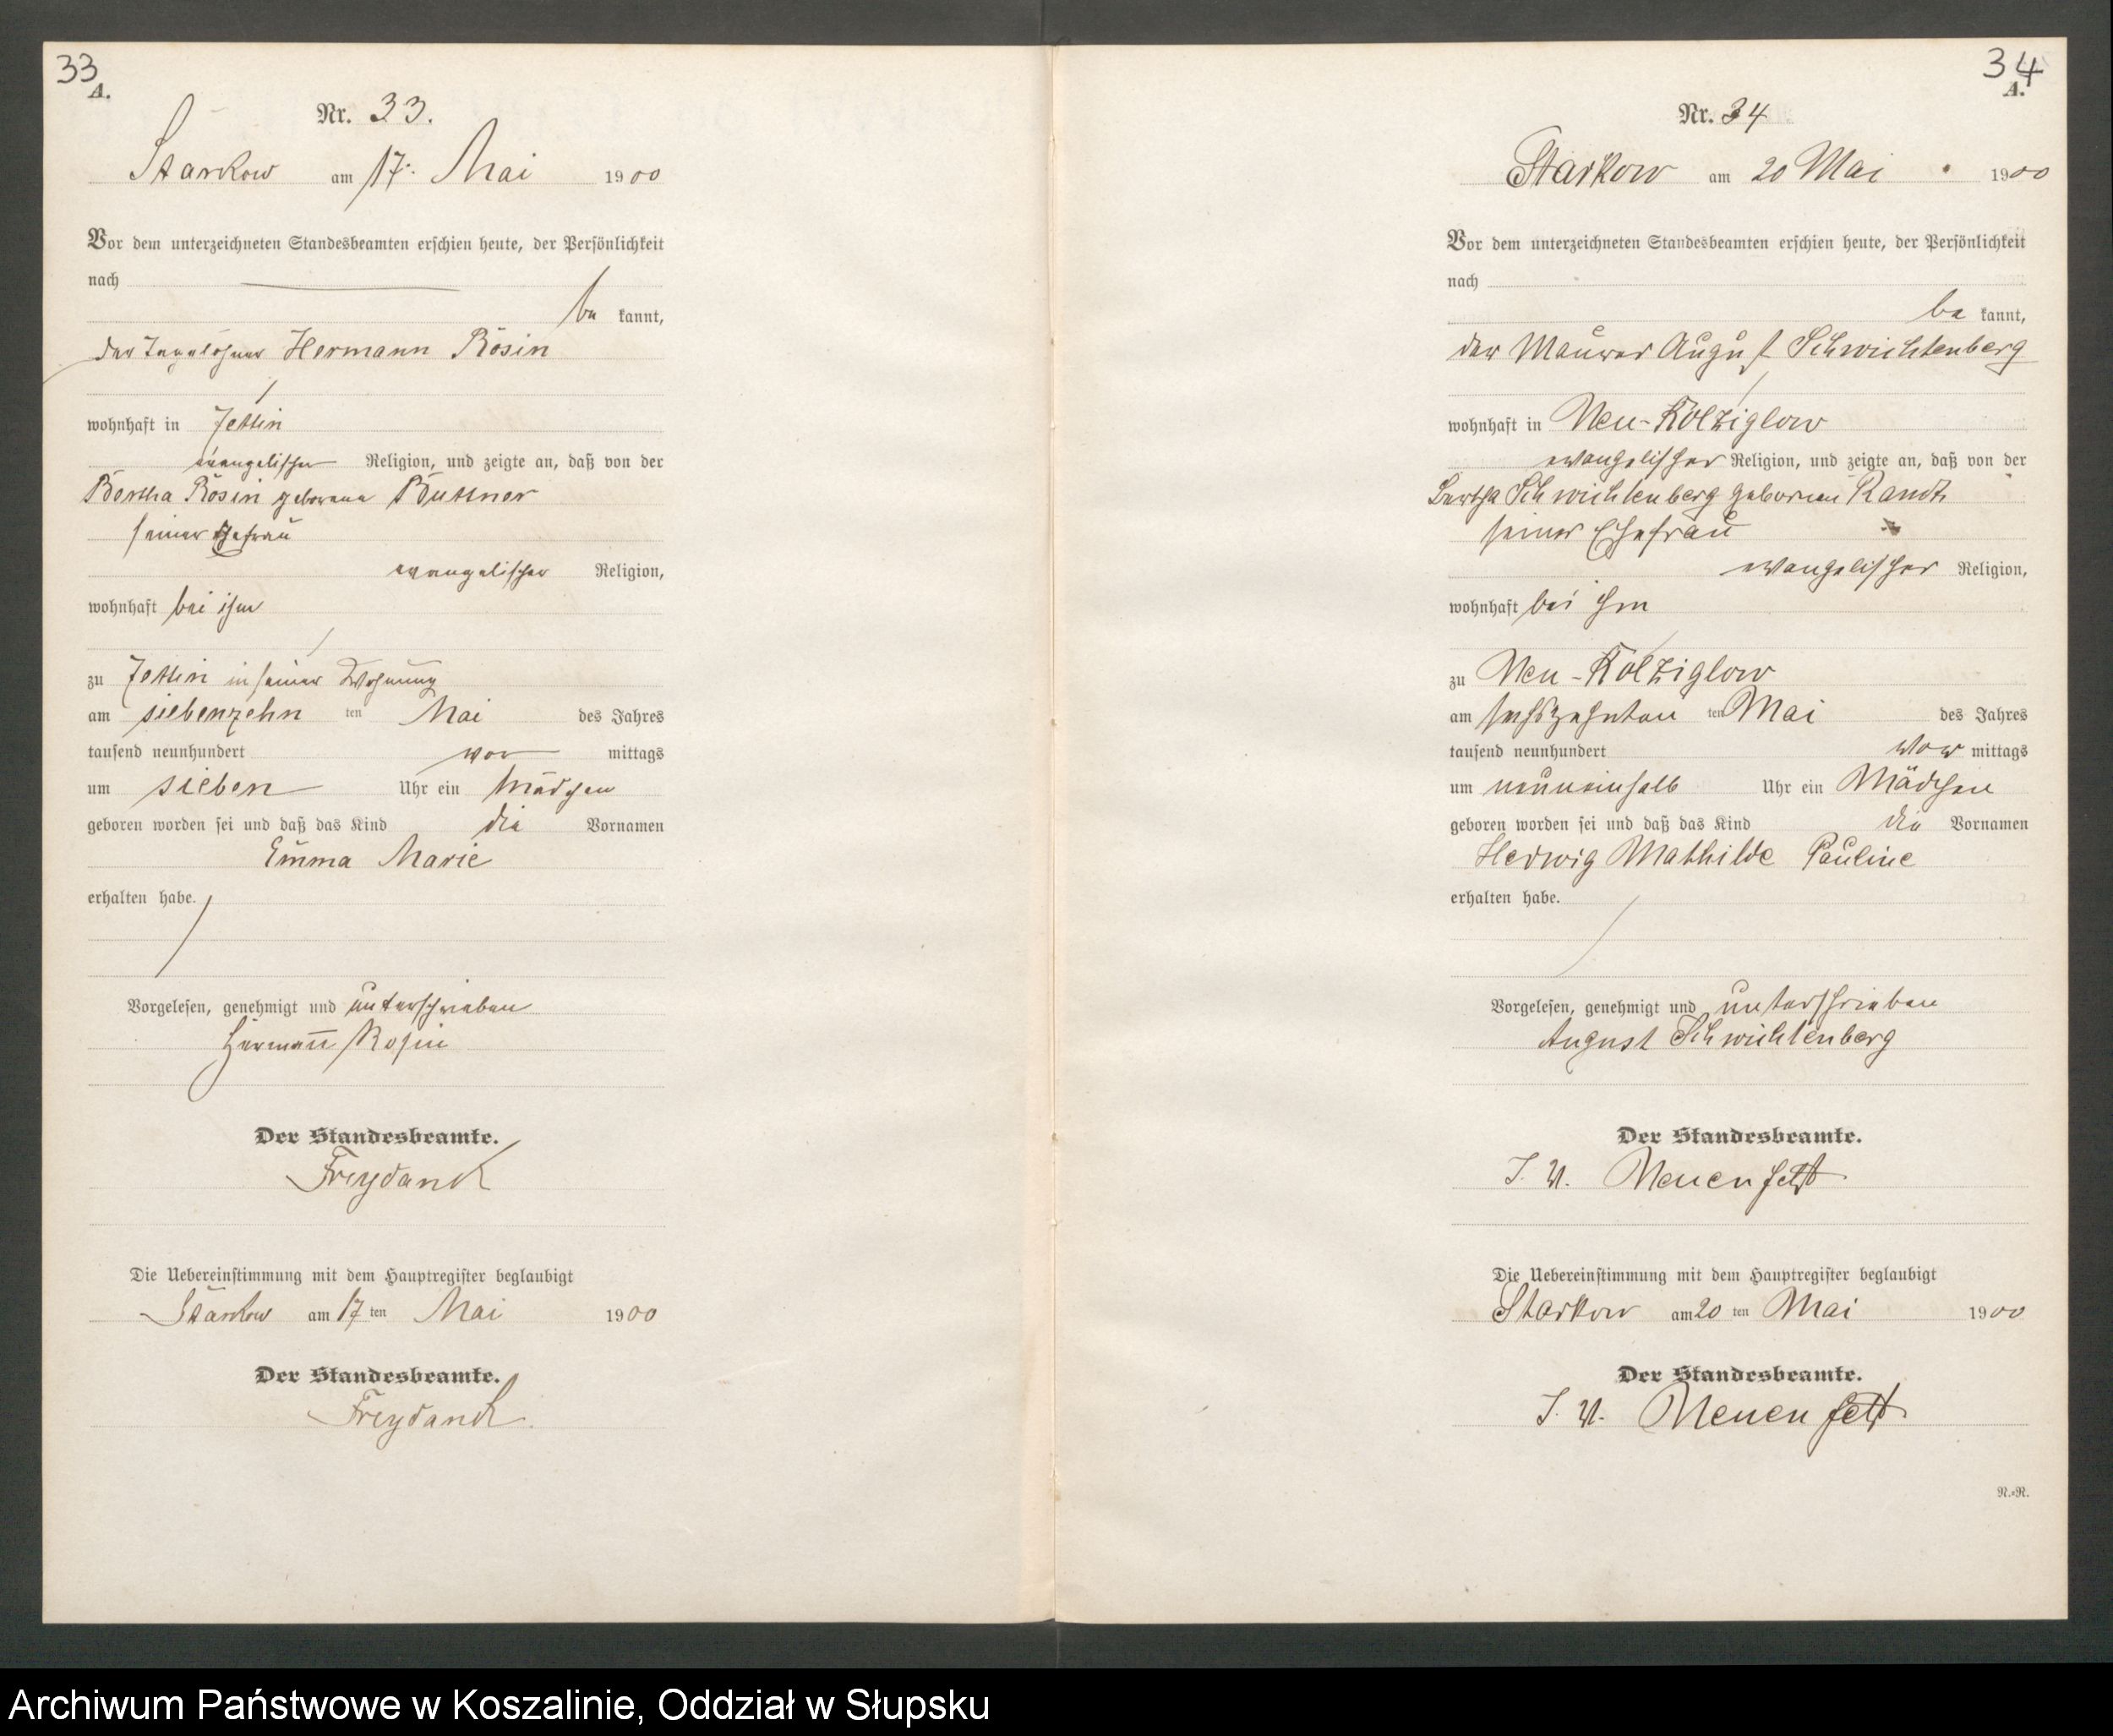 33
A.
Nr. 33.
Starkow am 17. Mai 1900
Vor dem unterzeichneten Standesbeamten erschien heute, der Persönlichkeit
nach
be kannt,
der Tagelöhner Hermann Rosin
wohnhaft in Jettin
evangelischer Religion, und zeigte an, daß von der
Bertha Rosin geborene Büttner
seiner Ehefrau
evangelischer Religion,
wohnhaft bei ihm
zu Jettin in seiner Wohnung
am siebenzehn ten Mai des Jahres
tausend neunhundert vor mittags
um sieben Uhr ein Mädchen
geboren worden sei und daß das Kind die Vornamen
Emma Marie
erhalten habe.
Vorgelesen, genehmigt und unterschrieben
Hermann Rosin
Der Standesbeamte.
Freydanck
Die Uebereinstimmung mit dem Hauptregister beglaubigt
Starkow am 17 ten Mai 1900
Der Standesbeamte.
Freydanck.
34
A.
Nr. 34
Starkow am 20 Mai 1900
Vor dem unterzeichneten Standesbeamten erschien heute, der Persönlichkeit
nach
be kannt,
der Maurer August Schwichtenberg
wohnhaft in Neu-Kolziglow
evangelischer Religion, und zeigte an, daß von der
Bertha Schwichtenberg geborenen Randt
seiner Ehefrau
evangelischer Religion,
wohnhaft bei ihm
zu Neu-Kolziglow
am sechszehnten ten Mai des Jahres
tausend neunhundert vor mittags
um neuneinhalb Uhr ein Mädchen
geboren worden sei und daß das Kind die Vornamen
Hedwig Mathilde Pauline
erhalten habe.
Vorgelesen, genehmigt und unterschrieben
August Schwichtenberg
Der Standesbeamte.
J. V. Neuenfeldt
Die Uebereinstimmung mit dem Hauptregister beglaubigt
Starkow am 20 ten Mai 1900
Der Standesbeamte.
J. V. Neuenfeldt
N.-N.
Archiwum Państwowe w Koszalinie, Oddział w Słupsku